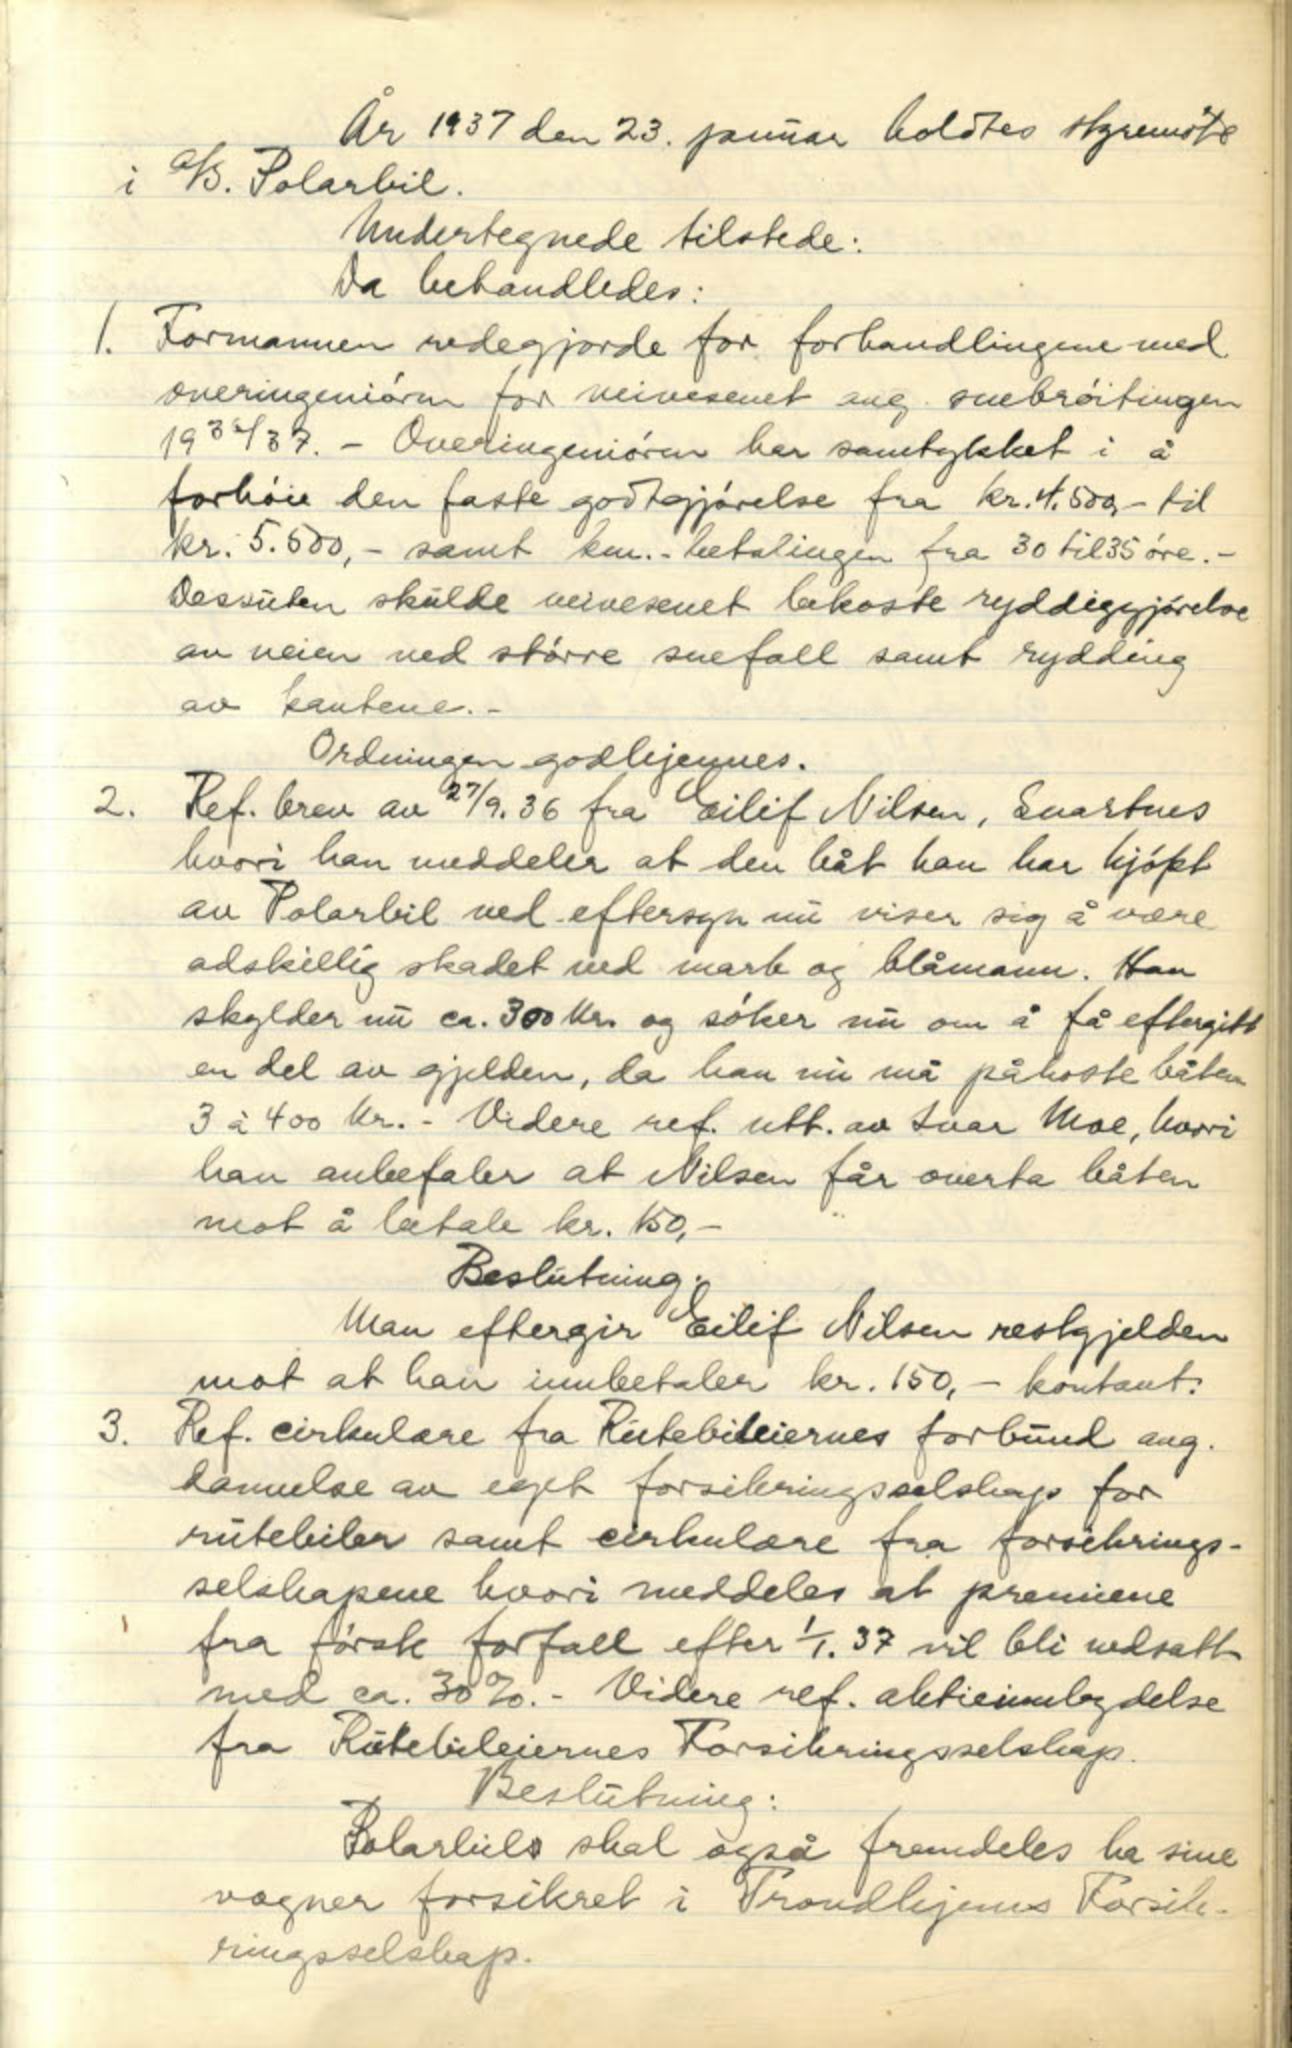 År 1937 den 23. januar holdtes styremöte
i A/S. Polarbil.
Undertegnede tilstede:
Da behandledes:
1. Formannen redegjorde for forhandlingene med
overingeniören for veivesenet ang. snebröitingen
1936/37. - Overingeniören har samtykket i å
forhöie den faste godtgjörelse fra kr. 4.500,- til
kr. 5.500,- samt km.-betalingen fra 30 til 35 öre.-
Dessuten skulde veivesenet bekoste ryddiggjörelse
av veien ved större snefall samt rydding
av kantene.-
Ordningen godkjennes.
2. Ref. brev av 27/9.36 fra Eilif Nilsen, Svartnes
hvori han meddeler at den båt han har kjöpt
av Polarbil ved eftersyn nu viser sig å være
adskillig skadet ved mark og blåmann. Han
skylder nu ca. 300 kr. og söker nu om å få eftergitt
en del av gjelden, da han nu må påkoste båten
3 à 400 kr. - Videre ref. utt. av Ivar Moe, hvori
han anbefaler at Nilsen får overta båten
mot å betale kr. 150,-
Beslutning:
Man eftergir Eilif Nilsen restgjelden
mot at han innbetaler kr. 150,- kontant.
3. Ref. cirkulære fra Rutebileiernes forbund ang.
dannelse av eget forsikringsselskap for
rutebiler samt cirkulære fra forsikrings-
selskapene hvori meddeles at premiene
fra först forfall efter 1/1. 37 vil bli nedsatt
med ca. 30%. - Videre ref. aktieinnbydelse
fra Rutebileiernes Forsikringsselskap.
Beslutning:
Polarbils skal også fremdeles ha sine
vogner forsikret i Trondhjems Forsik-
ringsselskap.